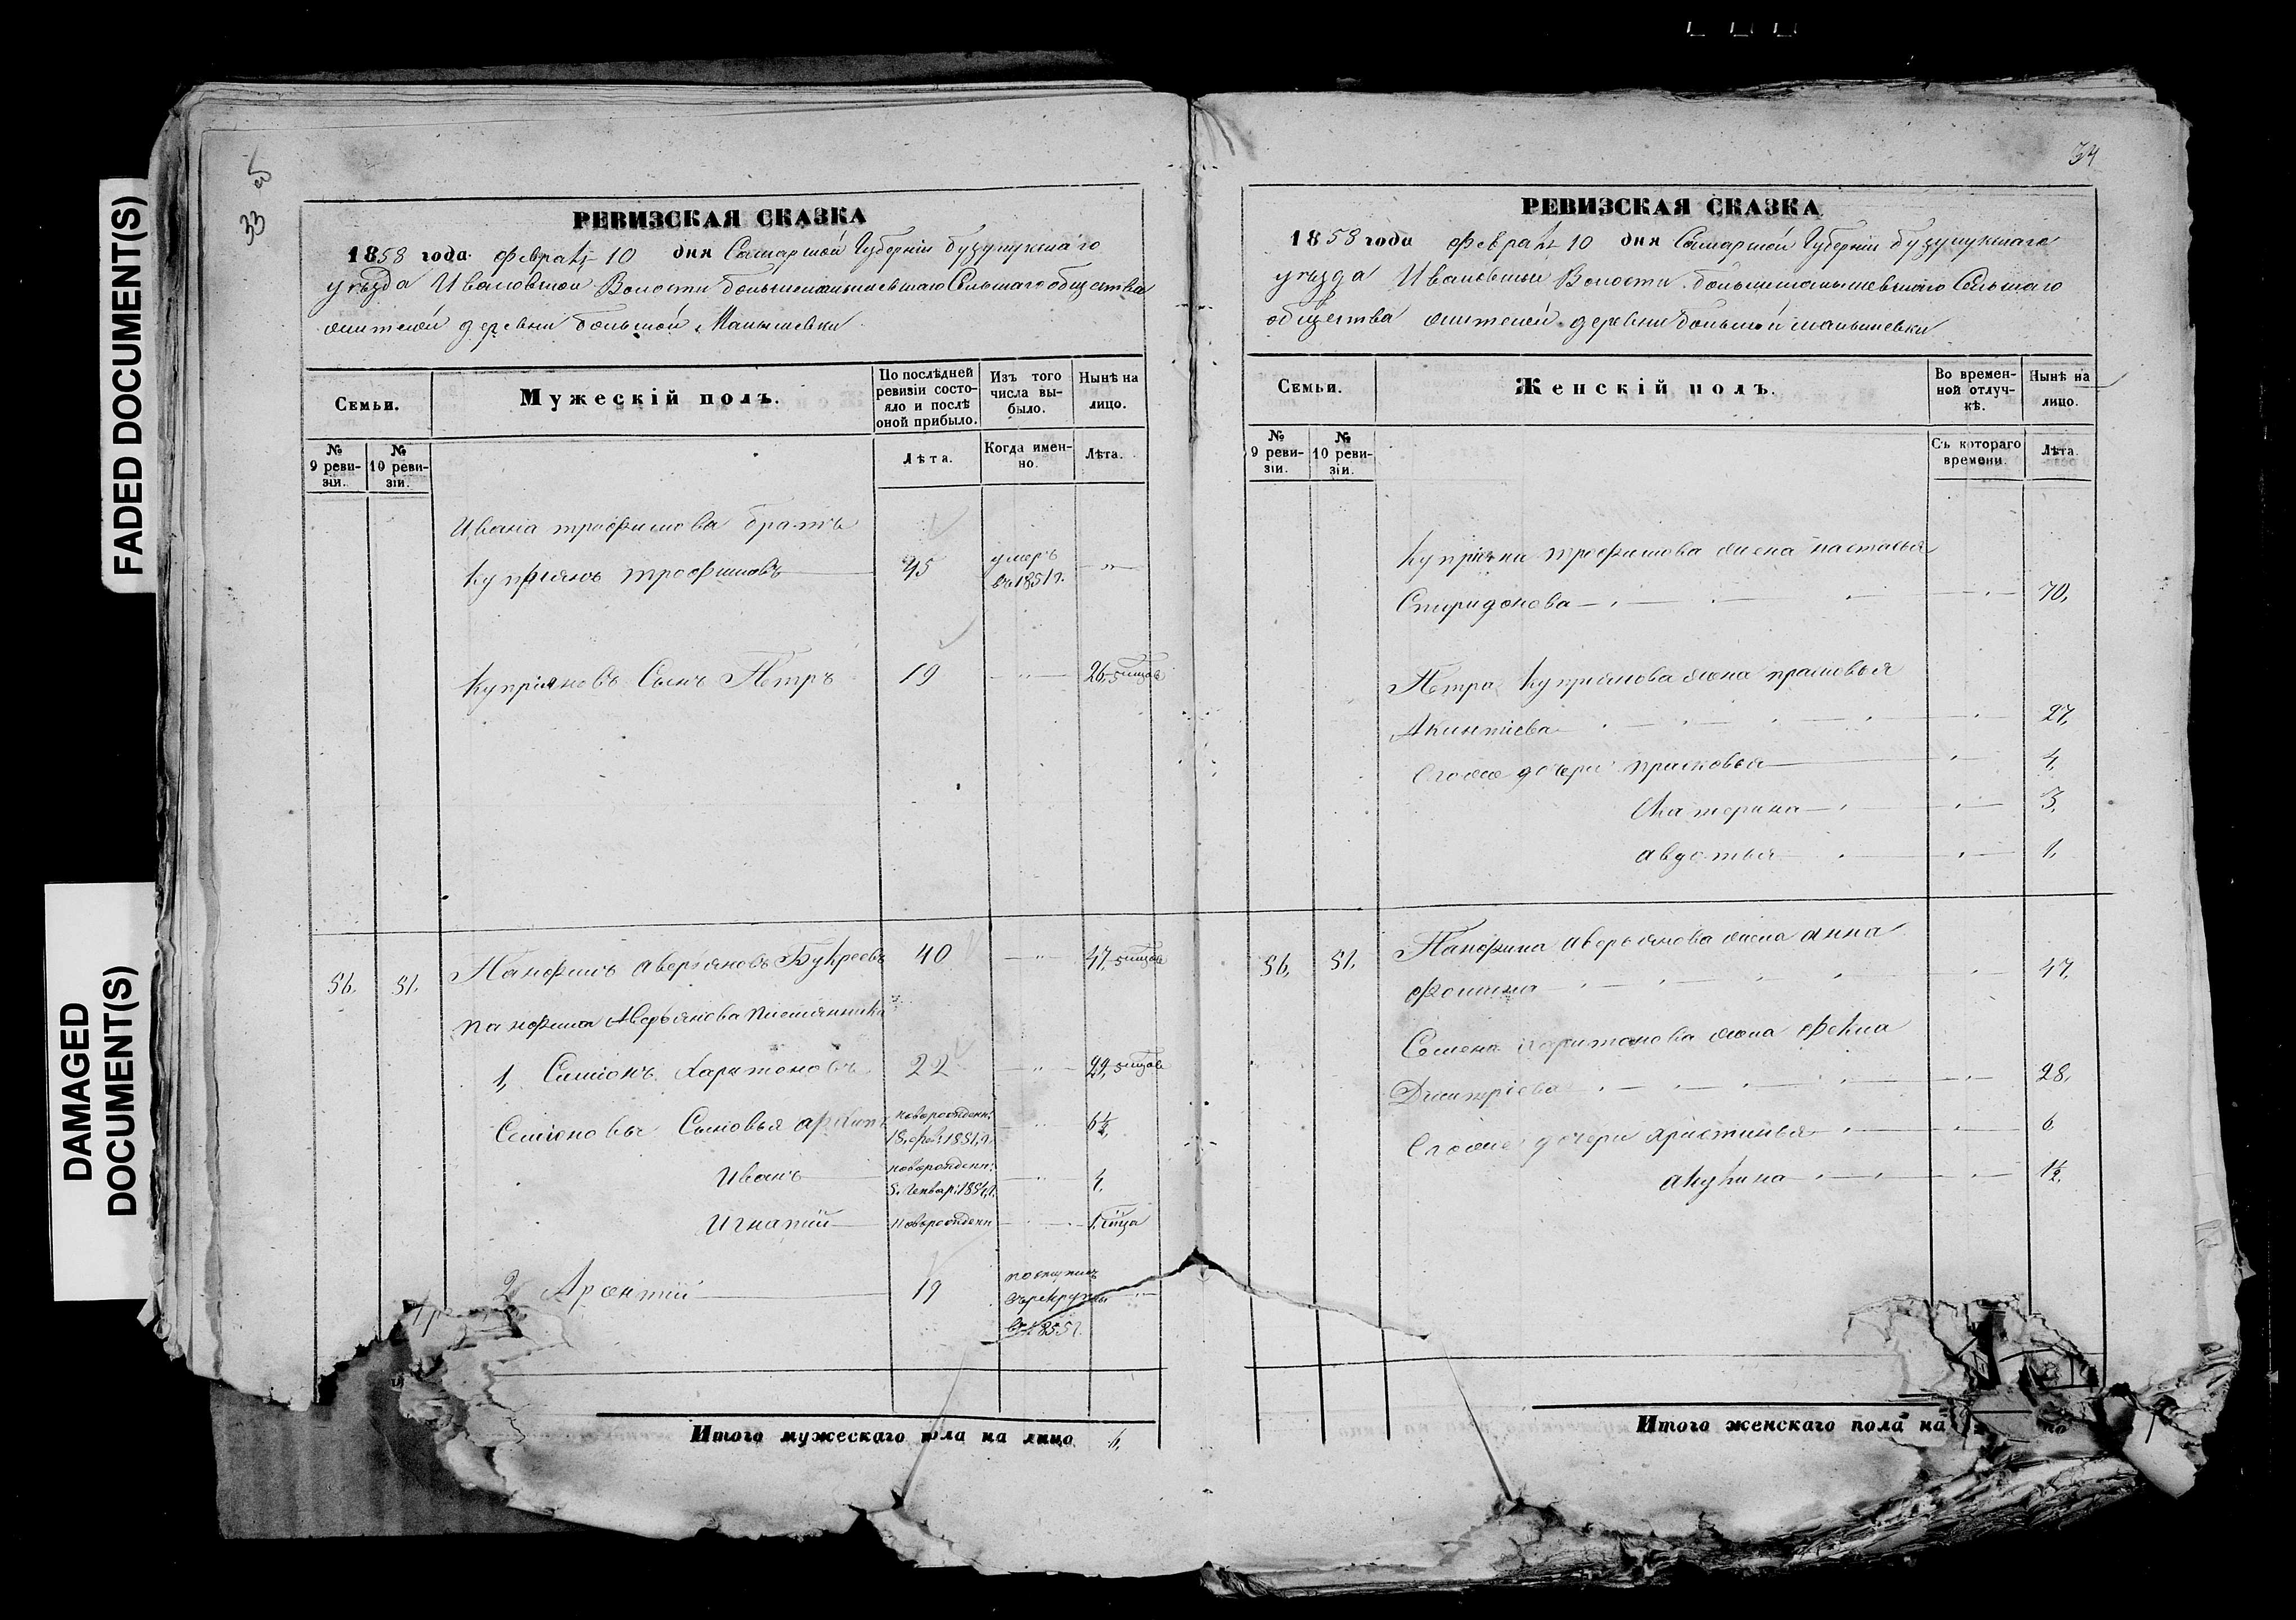 FADED DOCUMENT(S)
DAMAGED
DOCUMENT(S)
33
РЕВИЗСКАЯ СКАЗКА
1858 года Февраля 10 дня Самарской Губерніи бузулукскаго
уѣзда Ивановской Волости большемалышевскаго Сельскаго общества
жителей деревни большой Малышевки
Семьи.
Мужескій полъ.
По послѣдней
ревизіи состо-
яло и послѣ
оной прибыло.
Изъ того
числа вы-
было.
Нынѣ на
лицо.
№
9 реви-
зіи.
№
10 реви-
зіи.
Лѣта.
Когда имен-
но.
Лѣта.
Ивана трофимова братъ
Купріянъ трофимовъ 45 умеръ
въ 1851 г.
Купріяновъ Сынъ Петръ 19 26
56. 51. Панфилъ аверьяновъ Букреевъ 40 47
Панфила Аверьянова племянники
1, Симіонъ Харитоновъ 22 29
Семіоновы Сыновья архипъ новорожденн: 6½
18. фев: 1851. г.
Иванъ новорожденн: 4
5. Генвар: 1854. г.
Игнатій новорожденн
2 Арентій 19 поступилъ
въ рекруты
въ 1855 г.
Итого мужескаго пола на лицо 6.
34
РЕВИЗСКАЯ СКАЗКА
1858 года Февраля 10 дня Самарской Губерніи бузулукскаго
уѣзда Ивановской Волости большемалышевскаго Сельскаго
общества жителей деревни большой малышевки
Семьи.
Женскій полъ.
Во времен-
ной отлуч-
кѣ.
Нынѣ на
лицо.
№
9 реви-
зіи.
№
10 реви-
зіи.
Съ котораго
времени.
Лѣта.
Купріяна трофимова жена настасья
Спиридонова 70,
Петра Купріянова жена прасковья
Акинтіева 27,
Его же дочери прасковья 4,
Екатерина 3,
авдотья 1,
56, 51, Панфила аверьянова жена анна
фомина 47,
Семена Харитонова жена фекла
Дмитріева 28,
Его же дочери христинья 6
акулина 1½
Итого женскаго пола на